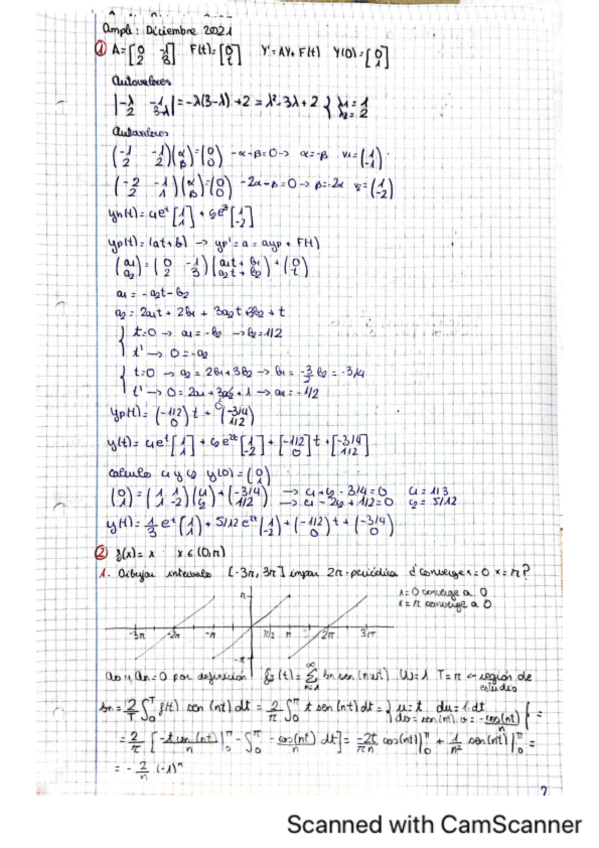 Ampli: Diciembre 2021
① A=[0 -1; 2 3] F(t)=[0; t] Y'=AY+F(t) Y(0)=[0; 1]
Autovalores
|-λ -1; 2 3-λ|=-λ(3-λ)+2=λ²-3λ+2 { λ1=1; λ2=2
Autovectores
(-1 -1; 2 2)(α; β)=(0; 0) -α-β=0 → α=-β v1=(1; -1)
(-2 -1; 2 1)(α; β)=(0; 0) -2α-β=0 → β=-2α v2=(1; -2)
yh(t)=c1e^t[1; 1]+c2e^2t[1; -2]
yp(t)=(at+b) → yp'=a=ayp+F(t)
(a1; a2)=(0 -1; 2 3)(a1t+b1; a2t+b2)+(0; t)
a1=-a2t-b2
a2=2a1t+2b1+3a2t+3b2+t
{ t=0 → a1=-b2 → b2=1/2
t' → 0=-a2
{ t=0 → a2=2b1+3b2 → b1=-3/2 b2=-3/4
t' → 0=2a1+3a2+1 → a1=-1/2
yp(t)=(-1/2; 0)t+(-3/4; 1/2)
y(t)=c1e^t[1; 1]+c2e^2t[1; -2]+[-1/2; 0]t+[-3/4; 1/2]
Calculo c1 y c2 y(0)=(0; 1)
(0; 1)=(1 1; 1 -2)(c1; c2)+(-3/4; 1/2) → c1+c2-3/4=0 → c1-2c2+1/2=0 c1=1/3 c2=5/12
y(t)=1/3 e^t(1; 1)+5/12 e^2t(1; -2)+(-1/2; 0)t+(-3/4; 0)
② f(x)=x x∈(0,π)
1. Dibujar intervalo [-3π, 3π] impar 2π-periódica ¿converge x=0 x=π?
x=0 converge a 0
x=π converge a 0
π
-3π -2π -π π/2 π 2π 3π
-π
a0 y an=0 por definición fs(t)=∑ n=1 ∞ bn sen(nωt) ω=1 T=π ← región de estudio
bn=2/T ∫0^T f(t) sen(nt)dt=2/π ∫0^π t sen(nt)dt={u=t du=1.dt; dv=sen(nt) v=-cos(nt)/n}=
=2/π [-t cos(nt)/n |0^π - ∫0^π -cos(nt)/n dt]=-2t/πn cos(nt)|0^π + 1/n² sen(nt)|0^π=
=-2/n (-1)^n
Scanned with CamScanner